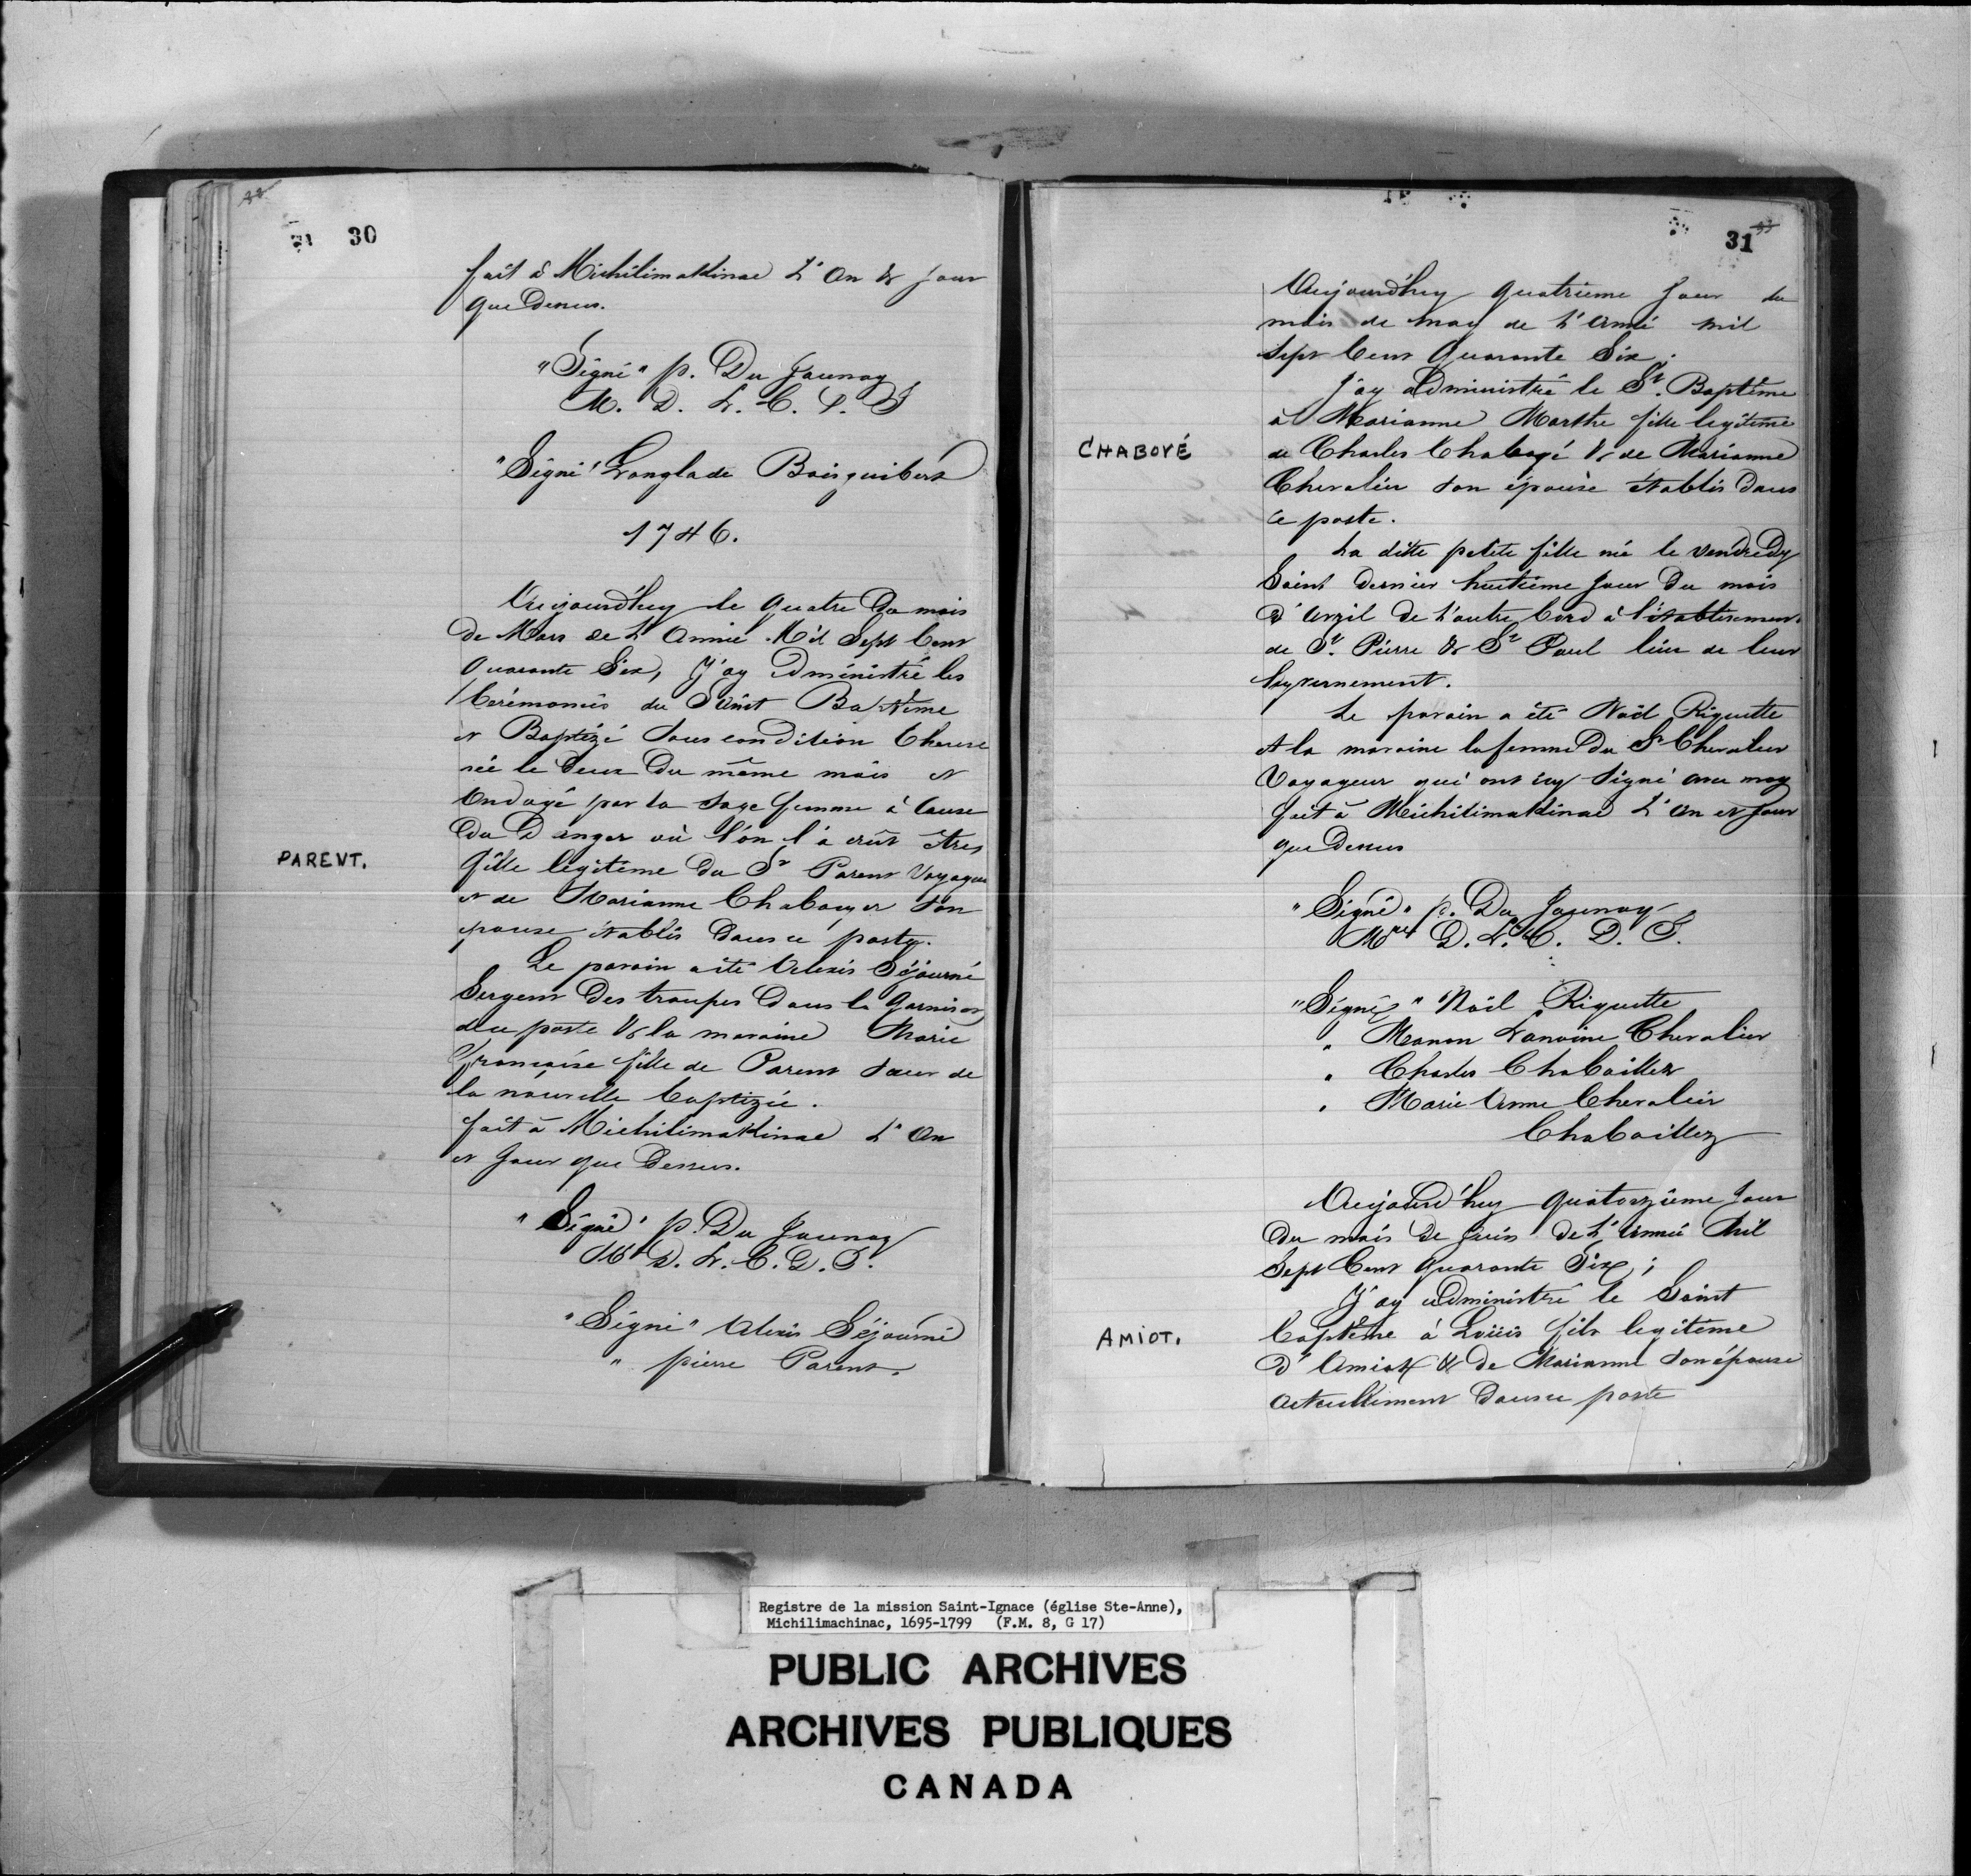 30
fait à Michilimakinac L'An & jour
que Dessus.
"Signé" p. Du Jaunay
M. D. L. C. D. J
"Signé" Langlade Boisguibert
1746.
Aujourd'huy le quatre Du mois
De Mars de L'Année Mil Sept Cent
Quarante Six, J'ay administré les
Cérémonies du Saint Baptême
et Baptizé Sous condition
née le Deux Du même mois et
Ondoyé par la Sage femme à Cause
Du Danger où l'on l'a crût être,
PARENT.
fille legitime Du Sr Parent Voyageur
et de Marianne Chaboyer Son
épouse établis Dans ce poste.
Le parain a été Alexis Séjourné
Sergent Des troupes Dans la Garnison
de ce poste & la maraine Marie
françoise fille de Parent Soeur de
la nouvelle baptizée.
fait à Michilimakinac L'An
et Jour que Dessus.
"Signé" p. Du Jaunay
Mre D. L. C. D. J.
"Signé" Alexis Séjourné
" pierre Parent.
31
Aujourd'huy quatrieme Jour du
mois de may de L'Année mil
Sept Cent Quarante Six;
J'ay administré le St. Baptême
à Marianne Marthe fille legitime
CHABOYÉ
de Charles Chaboyé & de Marianne
Chevalier Son épouse établis Dans
ce poste.
La ditte petite fille née le vendredy
Saint Dernier huitieme Jour Du mois
D'Avril de L'autre bord à l'établissement
de St. Pierre & St Paul lieu de leur
hyvernement.
Le parain a été Noël Riquette
et la maraine la femme Du Sr Chevalier
Voyageur qui ont icy Signé avec moy
fait à Michilimakinac L'An et Jour
que Dessus
"Signé" p. Du Jaunay
Mre D. L. C. D. J.
"Signé" Noël Riquette
" Manon Lanoine Chevalier
" Charles Chaboillez
" Marie Anne Chevalier
Chaboillez
Aujourd'huy quatorzieme Jour
Du mois De Juin De L'Année Mil
Sept Cent Quarante Six;
J'ay administré le Saint
AMIOT.
baptême à Loüis fils legitime
D'Amiot & De Marianne Son épouse
actuellement Dans ce poste
Registre de la mission Saint-Ignace (église Ste-Anne),
Michilimachinac, 1695-1799 (F.M. 8, G 17)
PUBLIC ARCHIVES
ARCHIVES PUBLIQUES
CANADA